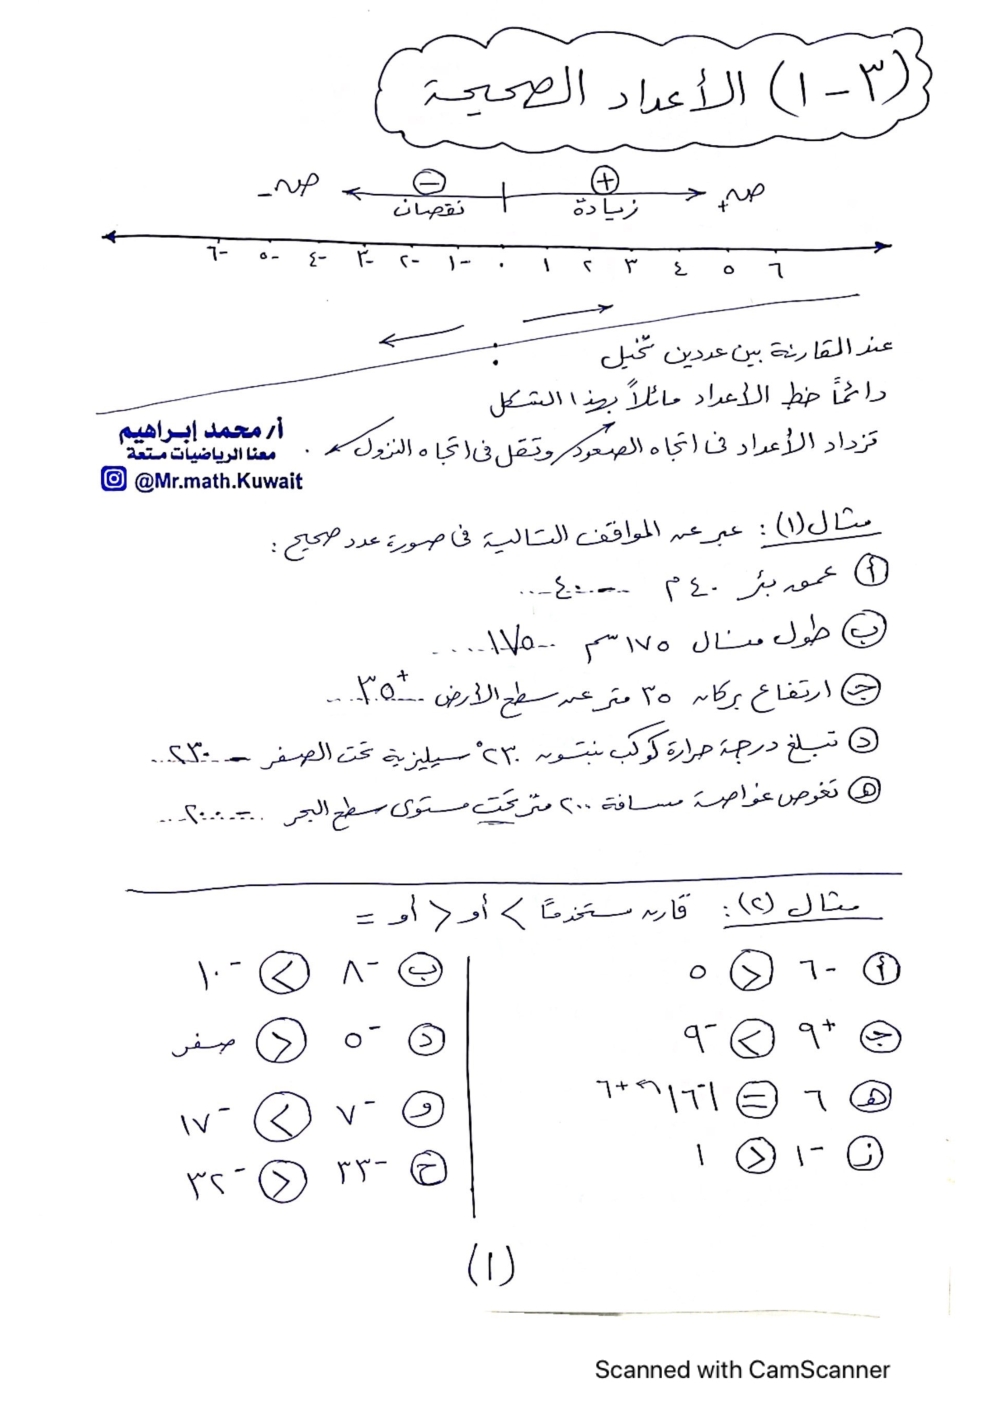 (٣-١) الأعداد الصحيحة
صـ+ ⊕ ⊖ صـ-
زيادة نقصان
-٦ -٥ -٤ -٣ -٢ -١ ٠ ١ ٢ ٣ ٤ ٥ ٦
عند المقارنة بين عددين تخيل
دائماً خط الأعداد مائلاً بهذا الشكل
تزداد الأعداد فى اتجاه الصعود وتقل فى اتجاه النزول .
أ/ محمد إبراهيم
معنا الرياضيات متعة
@Mr.math.Kuwait
مثال (١): عبر عن المواقف التالية فى صورة عدد صحيح :
أ عمق بئر ٤٠ م -٤٠
ب طول منال ١٧٥ سم ١٧٥
ج ارتفاع بركان ٣٥ متر عن سطح الأرض +٣٥
د تبلغ درجة حرارة كوكب نبتون ٢٣٠° سيليزية تحت الصفر -٢٣٠
هـ تغوص غواصة مسافة ٢٠٠ متر تحت مستوى سطح البحر -٢٠٠
مثال (٢): قارن مستخدمًا > أو < أو =
أ -٦ > ٥
ب -٨ < -١٠
ج +٩ < -٩
د -٥ > صفر
هـ ٦ = |-٦| +٦
و -٧ < -١٧
ز -١ > ١
ح -٣٣ > -٣٢
(١)
Scanned with CamScanner